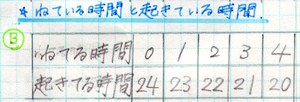 *ねている時間と起きている時間.
日
ねてる時間 0 1 2 3 4
起きてる時間 24 23 22 21 20